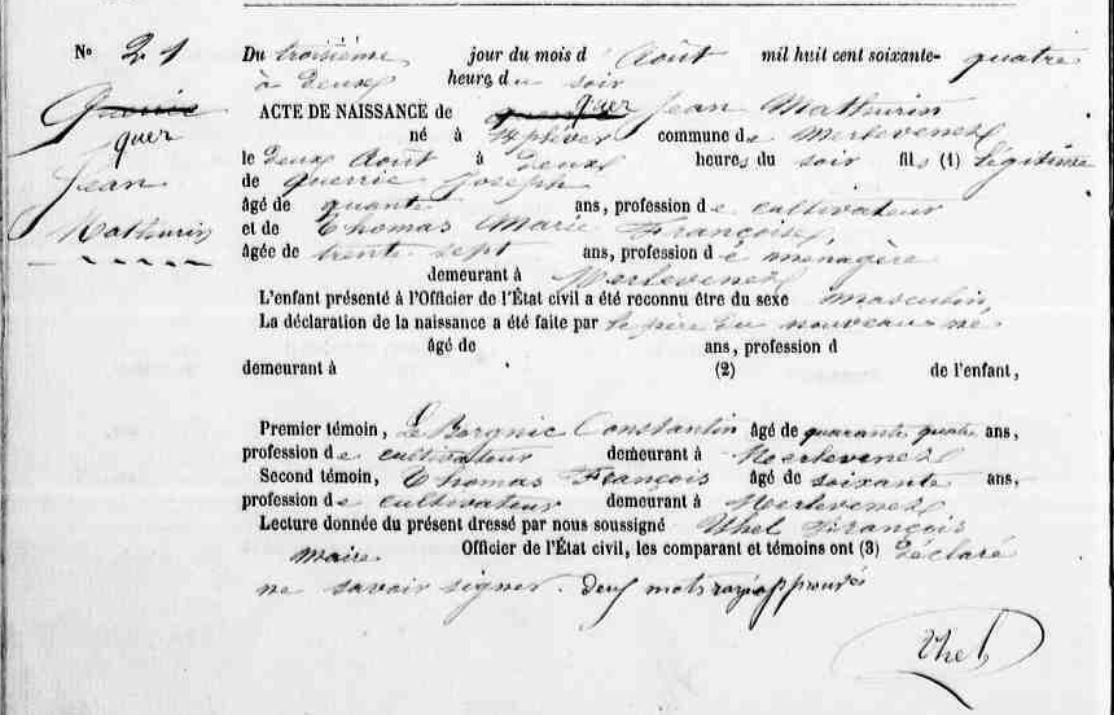 No 21
Du troisième jour du mois d'Août mil huit cent soixante-quatre
à deux heures du soir
Querric
quer
Jean
Mathurin
ACTE DE NAISSANCE de quer Jean Mathurin
né à commune de Merlevenez
le deux Août à deux heures du soir fils (1) légitime
de Querric Joseph
âgé de quante ans, profession de cultivateur
et de Thomas Marie Françoise,
âgée de trente sept ans, profession de ménagère
demeurant à Merlevenez
L'enfant présenté à l'Officier de l'État civil a été reconnu être du sexe masculin
La déclaration de la naissance a été faite par le père du nouveau né
âgé de ans, profession d
demeurant à (2) de l'enfant,
Premier témoin, Le Borgnic Constantin âgé de quarante quatre ans,
profession de cultivateur demeurant à Merlevenez
Second témoin, Thomas François âgé de soixante ans,
profession de cultivateur demeurant à Merlevenez
Lecture donnée du présent dressé par nous soussigné Uhel François
maire Officier de l'État civil, les comparant et témoins ont (3) déclaré
ne savoir signer. deux mots rayés approuvés
Uhel